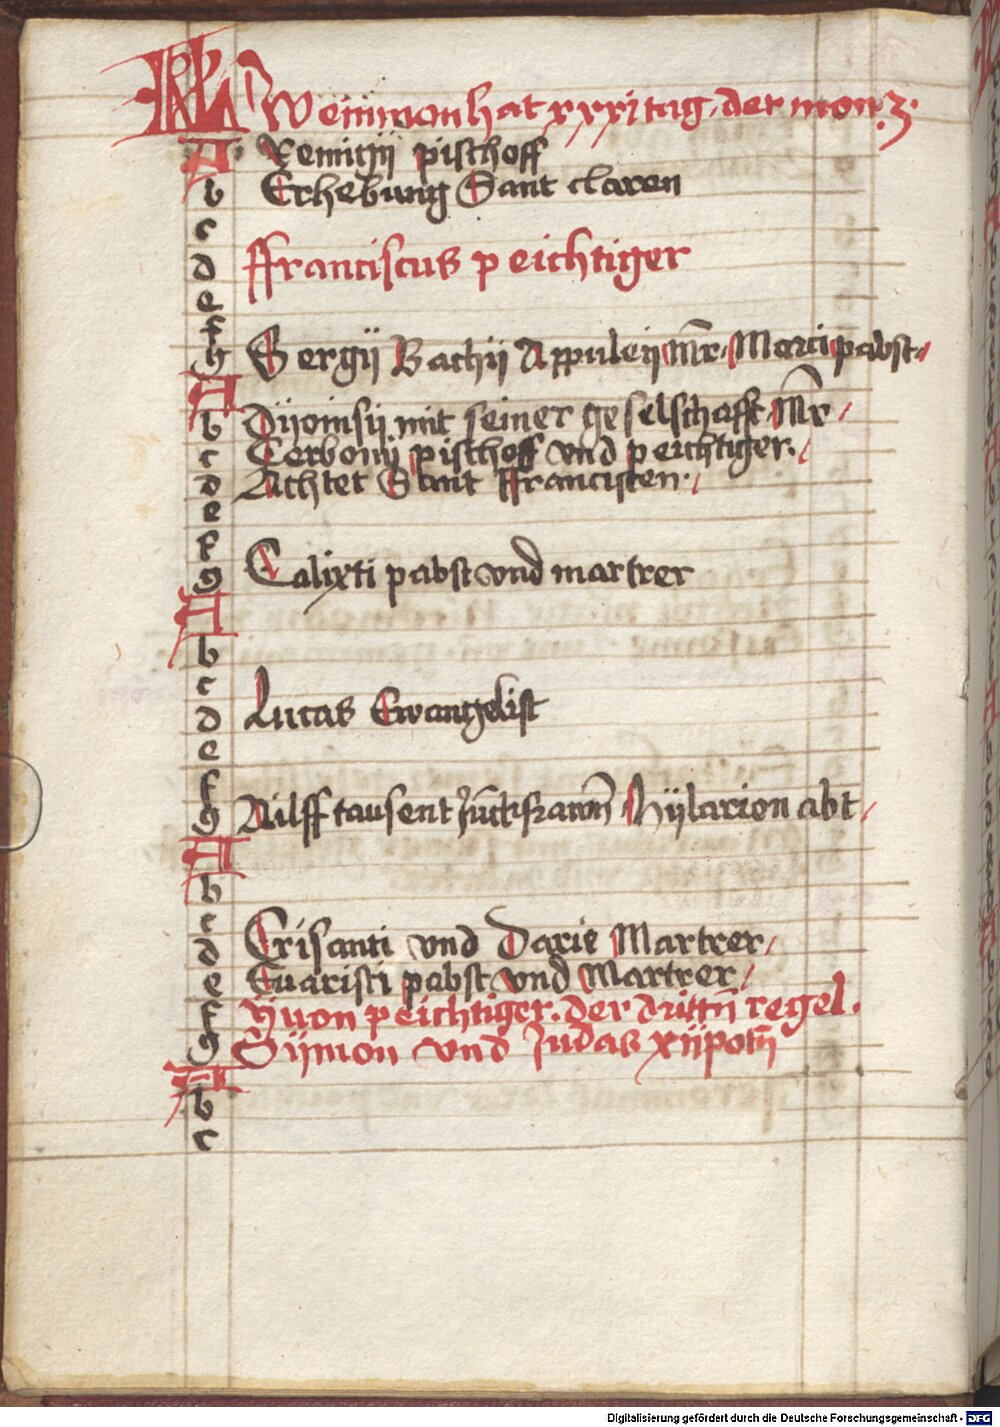 KL Weinmon hat xxxi tag. der mon. 3.
A Remigij pischoff
b Erhebung Sant claren
c
d ffranciscus peichtiger
e
f
g Sergij Bachij Appuleij mr. Marci pabst.
A
b Dyonisij mit seiner geselschafft Mr
c Cerbonij pischoff vnd peichtiger.
d Achtet Sant ffrancisten.
e
f
g Calixti pabst vnd martrer
A
b
c
d Lucas Ewangelist
e
f
g Ailff tausent Junckfrawen Hylarion abt
A
b
c
d Crisanti vnd Darie Martrer
e Euaristi pabst vnd Martrer
f Yuon peichtiger. der drittn regel.
g Symon vnd Judas xijpotn
A
b
c
Digitalisierung gefördert durch die Deutsche Forschungsgemeinschaft - DFG